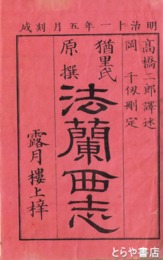 明治十一年五月刻成
高橋二郎譯述
岡千仭刪定
猶里氏原撰
法蘭西志
露月樓上梓
とらや書店